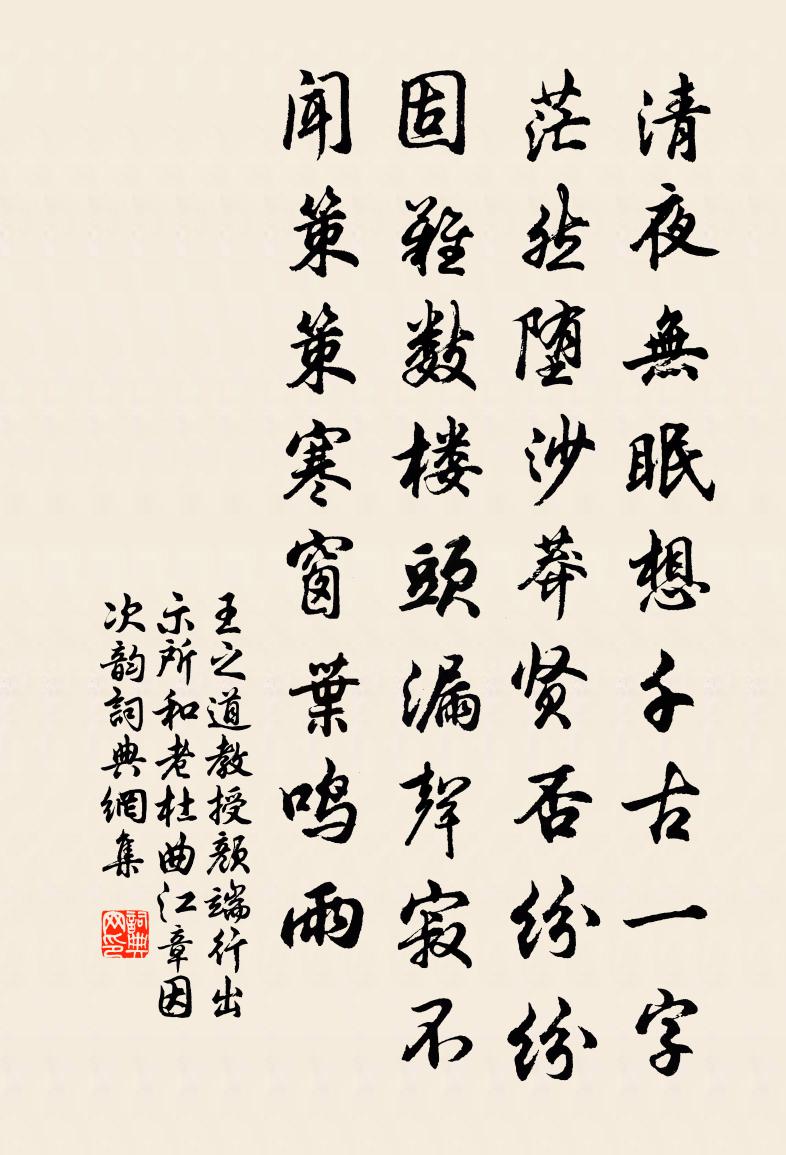 清夜無眠想千古一字
茫然堕沙莽贤否纷纷
固難數楼頭漏聲寂不
闻策策寒窗葉鸣雨
王之道教授颜端行出
示所和老杜曲江章因
次韵詞典網集
詞典网印